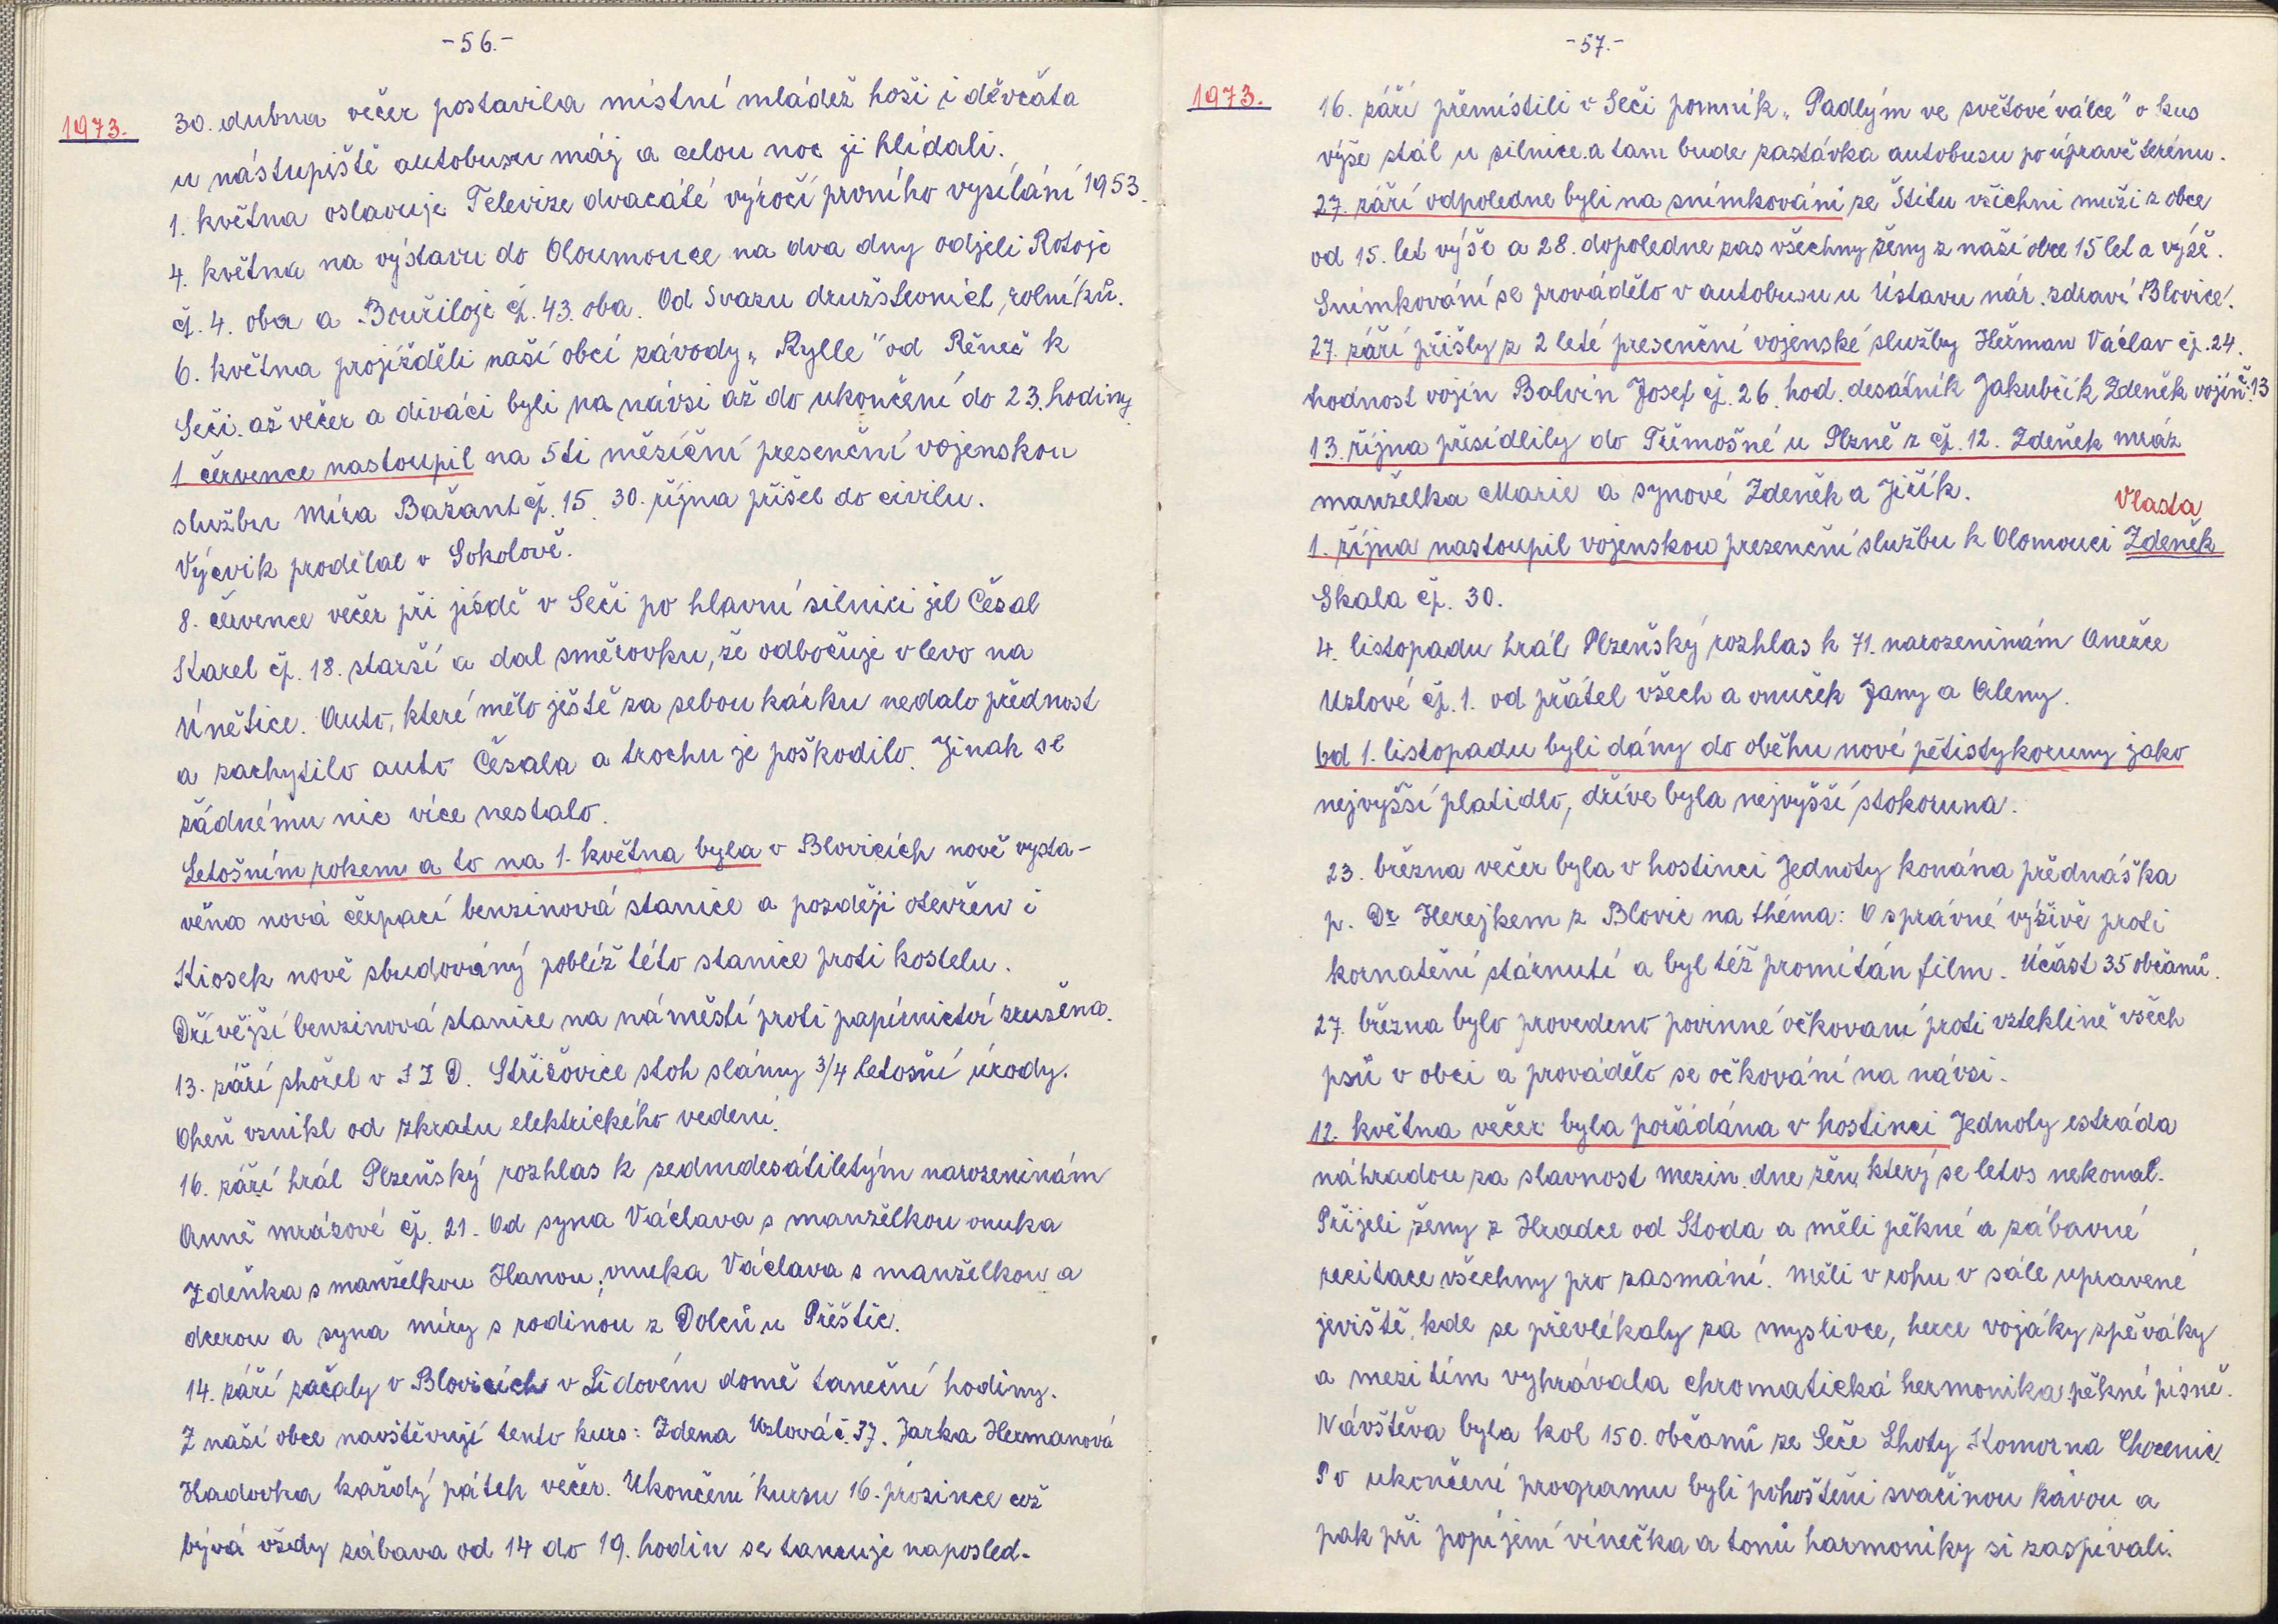 -56.-
1973.
30. dubna večer postavila místní mládež hoši i děvčata
u nástupiště autobusu máj a celou noc ji hlídali.
1. května oslavuje Televize dvacáté výročí prvního vysílání 1953.
4. května na výstavu do Oloumouce na dva dny odjeli Rotoje
čj. 4. oba a Bouřiloje čj. 43. oba. Od Svazu družstevnict, rolníků.
6. května projížděli naší obcí závody „Rylle" od Řeneč k
Seči. až večer a diváci byli na návsi až do ukončení do 23. hodiny
1 července nastoupil na 5ti měsíční presenční vojenskou
službu Míra Bažant čj. 15. 30. října přišel do civilu.
Výcvik prodělal v Sokolově.
8. července večer při jízdě v Seči po hlavní silnici jel Česal
Karel čj. 18. starší a dal směrovku, že odbočuje vlevo na
Únětice. Auto, které mělo ještě za sebou kárku nedalo přednost
a zachytilo auto Česala a trochu je poškodilo. Jinak se
žádnému nic více nestalo.
Letošním rokem a to na 1. května byla v Blovicích nově vysta-
věna nová čerpací benzinová stanice a později otevřen i
Kiosek nově zbudováný poblíž této stanice proti kostelu.
Dřívější benzinová stanice na náměstí proti papírnictví zrušena.
13. září shořel v J Z D. Střižovice stoh slámy 3/4 letošní úrody.
Oheň vznikl od zkratu elektrického vedení.
16. září hrál Plzeňský rozhlas k sedmdesátiletým narozeninám
Anně Mrázové čj. 21. Od syna Václava s manželkou vnuka
Zdeňka s manželkou Hanou, vnuka Václava s manželkou a
dcerou a syna Míry s rodinou z Dolců u Přeštic.
14. září začaly v Blovicích v Lidovém domě taneční hodiny.
Z naší obce navštěvují tento kurs: Zdena Uzlová č. 37. Jarka Heřmanová
Hadovka každý pátek večer. Ukončení kursu 16. prosince což
bývá vždy zábava od 14 do 19. hodin se tancuje naposled.
-57.-
1973.
16. září přemístili v Seči pomník „Padlým ve světové válce" o kus
výše stál u silnice. a tam bude zastávka autobusu po úpravě terénu.
27. září odpoledne byli na snímkování ze Štítu všichni muži z obce
od 15. let výše a 28. dopoledne zas všechny ženy z naší obce 15 let a výše.
Snímkování se provádělo v autobusu u Ústavu nár. zdraví Blovice.
27. září přišly z 2 leté presenční vojenské služby Heřman Václav čj. 24.
hodnost vojín Balvín Josef čj. 26. hod. desátník Jakubčík Zdeněk vojín č. 13
13. října přesídlily do Třemošné u Plzně z čj. 12. Zdeněk Mráz
manželka Marie a synové Zdeněk a Jiřík.
Vlasta
1. října nastoupil vojenskou prezenční službu k Olomouci Zdeněk
Skala čj. 30.
4. listopadu hrál Plzeňský rozhlas k 71. narozeninám Anežce
Uzlové čj. 1. od přátel všech a vnuček Jany a Aleny.
Od 1. listopadu byli dány do oběhu nové pětistykoruny jako
nejvyšší platidlo, dříve byla nejvyšší stokoruna.
23. března večer byla v hostinci Jednoty konána přednáška
p. Dr Herejkem z Blovic na théma: O správné výživě proti
kornatění stárnutí a byl též promítán film. Účast 35 občanů.
27. března bylo provedeno povinné očkovaní proti vzteklině všech
psů v obci a provádělo se očkování na návsi.
12. května večer byla pořádána v hostinci Jednoty estráda
náhradou za slavnost Mezin. dne žen, který se letos nekonal.
Přijeli ženy z Hradce od Stoda a měli pěkné a zábavné
recitace všechny pro zasmání. Měli v rohu v sále upravené
jeviště, kde se převlékaly za myslivce, herce vojáky zpěváky
a mezitím vyhrávala chromatická hermonika pěkné písně.
Návštěva byla kol 150. občanů ze Seče Lhoty Komorna Chocenic.
Po ukončení programu byli pohoštěni svačinou kávou a
pak při popíjení vínečka a tonů harmoniky si zaspívali.